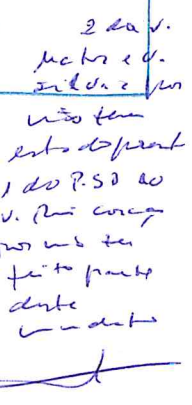 2 da v.
Matos e v.
Silva e por
não ter
estado present
1 do P.SD ao
v. Rui
por não ter
feito parte
deste
mandato